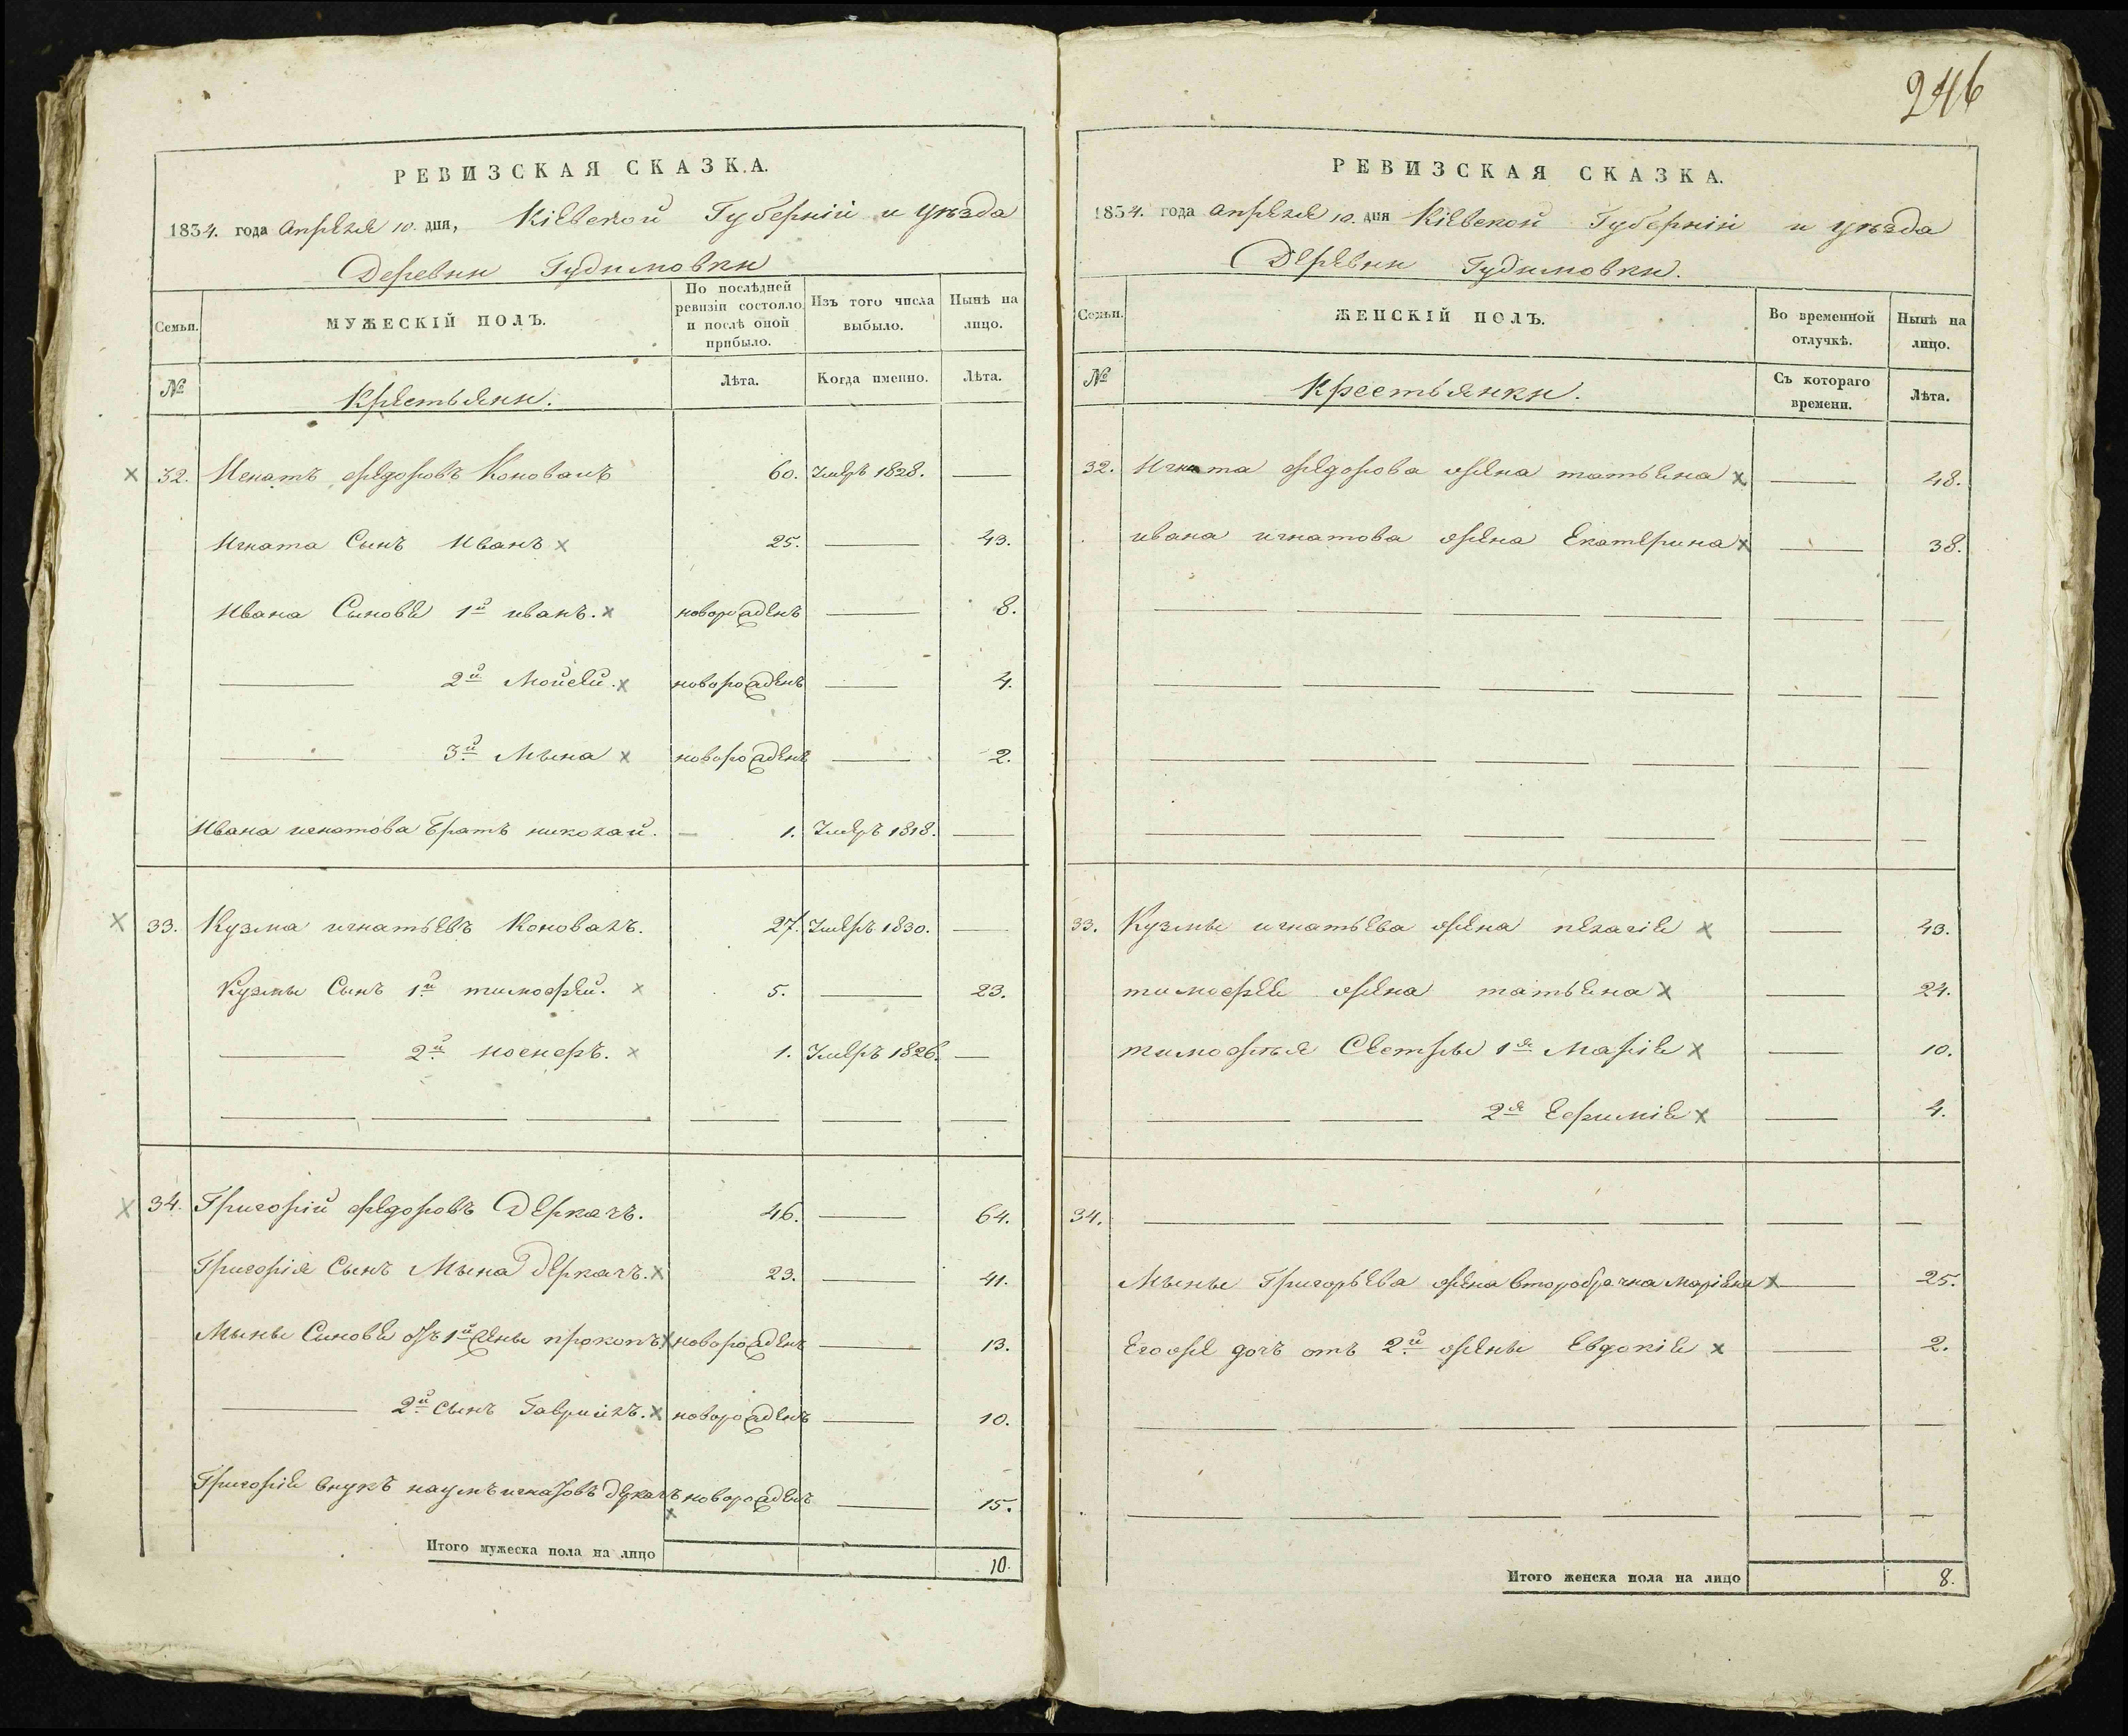 246
РЕВИЗСКАЯ СКАЗКА.
1834. года Апреля 10. дня, Кіевской Губерніи и уѣзда
Деревни Гудимовки
Семьи.
МУЖЕСКІЙ ПОЛЪ.
По послѣдней ревизіи состояло и послѣ оной прибыло.
Изъ того числа выбыло.
Нынѣ на лицо.
№
Крестьяни.
Лѣта.
Когда именно.
Лѣта.
32. Игнатъ федоровъ Коновалъ 60. Умеръ 1828. —
Игната Сынъ Иванъ x 25. — 43.
Ивана Сынове 1й иванъ. x новорожденъ — 8.
— 2й Мойсей. x новорожденъ — 4.
— 3й Мына x новорожденъ — 2.
Ивана игнатова Братъ николай. — 1. Умеръ 1818. —
33. Кузма игнатьевъ Коновалъ. 27. Умеръ 1830. —
Кузмы Сынъ 1й тимофей. x 5. — 23.
— 2й x 1. Умеръ 1826. —
34. Григорій федоровъ Деркачъ. 46. — 64.
Григорія Сынъ Мына деркачъ. x 23. — 41.
Мыны Синове отъ 1й жены прокопъ x новорожденъ — 13.
— 2й сынъ Гаврийлъ. x новорожденъ — 10.
Григорія внукъ наумъ игнатовъ деркачъ x новорожденъ — 15.
Итого мужеска пола на лицо 10.
РЕВИЗСКАЯ СКАЗКА.
1834. года апреля 10. дня Кіевской Губерніи и уѣзда
Деревни Гудимовки.
Семьи.
ЖЕНСКІЙ ПОЛЪ.
Во временной отлучкѣ.
Нынѣ на лицо.
№
Крестьянки.
Съ котораго времени.
Лѣта.
32. Игната федорова жена татьяна x — 48.
ивана игнатова жена Екатерина x — 38.
33. Кузмы игнатьева жена пелагія x — 43.
тимофея жена татьяна x — 24.
тимофея Сестры 1я Марія x — 10.
— 2я Ефимія x — 4.
34. —
Мыны Григорьева жена второбрачна маріяна x — 25.
Егоже дочъ отъ 2й жены Евдокія x — 2.
Итого женска пола на лицо 8.